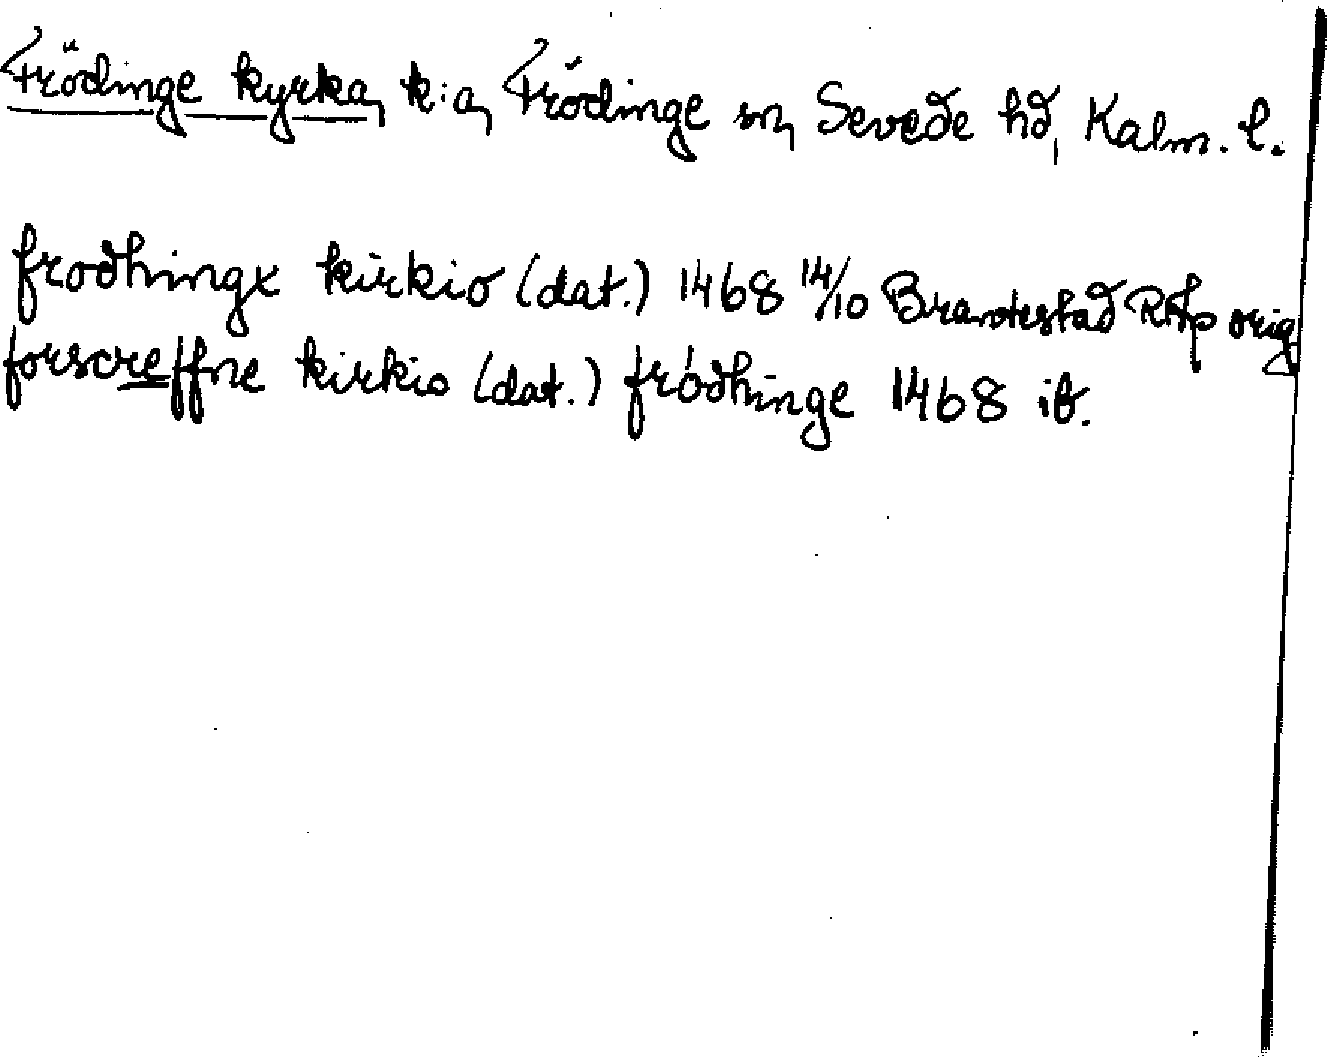 Frödinge kyrka, k:a, Frödinge sn, Sevede hd, Kalm. l.
frodhinge kirkio (dat.) 1468 14/10 Brantestad RAp orig
forscreffne kirkio (dat.) frødhinge 1468 ib.